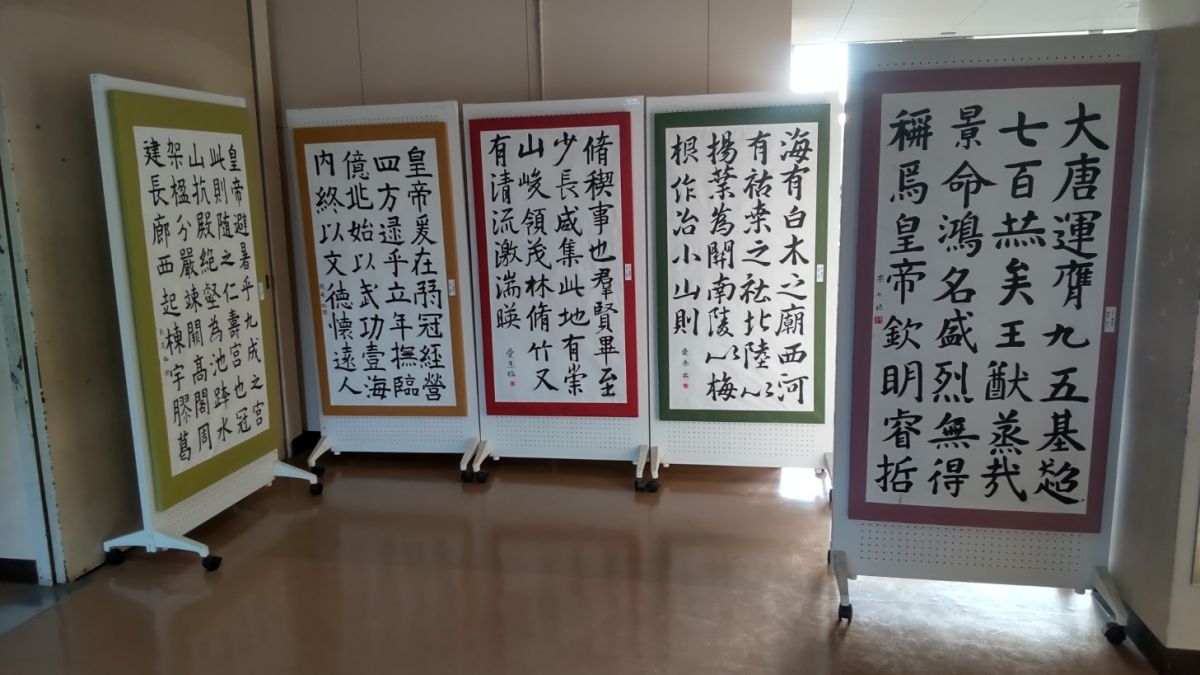 大唐運膺九五基超
七百赫矣王猷蒸哉
景命鴻名盛烈無得
稱焉皇帝欽明睿哲
海有白木之廟西河
有枯桒之社北陸以
揚葉為關南陵以梅
根作冶小山則
脩稧事也羣賢畢至
少長咸集此地有崇
山峻領茂林脩竹又
有清流激湍暎
皇帝爰在弱冠經營
四方逮乎立年撫臨
億兆始以武功壹海
内終以文德懷遠人
皇帝避暑乎九成之宮
此則随之仁壽宮也冠
山抗殿絶壑為池跨水
架楹分嚴竦闕高閣周
建長廊四起棟宇膠葛